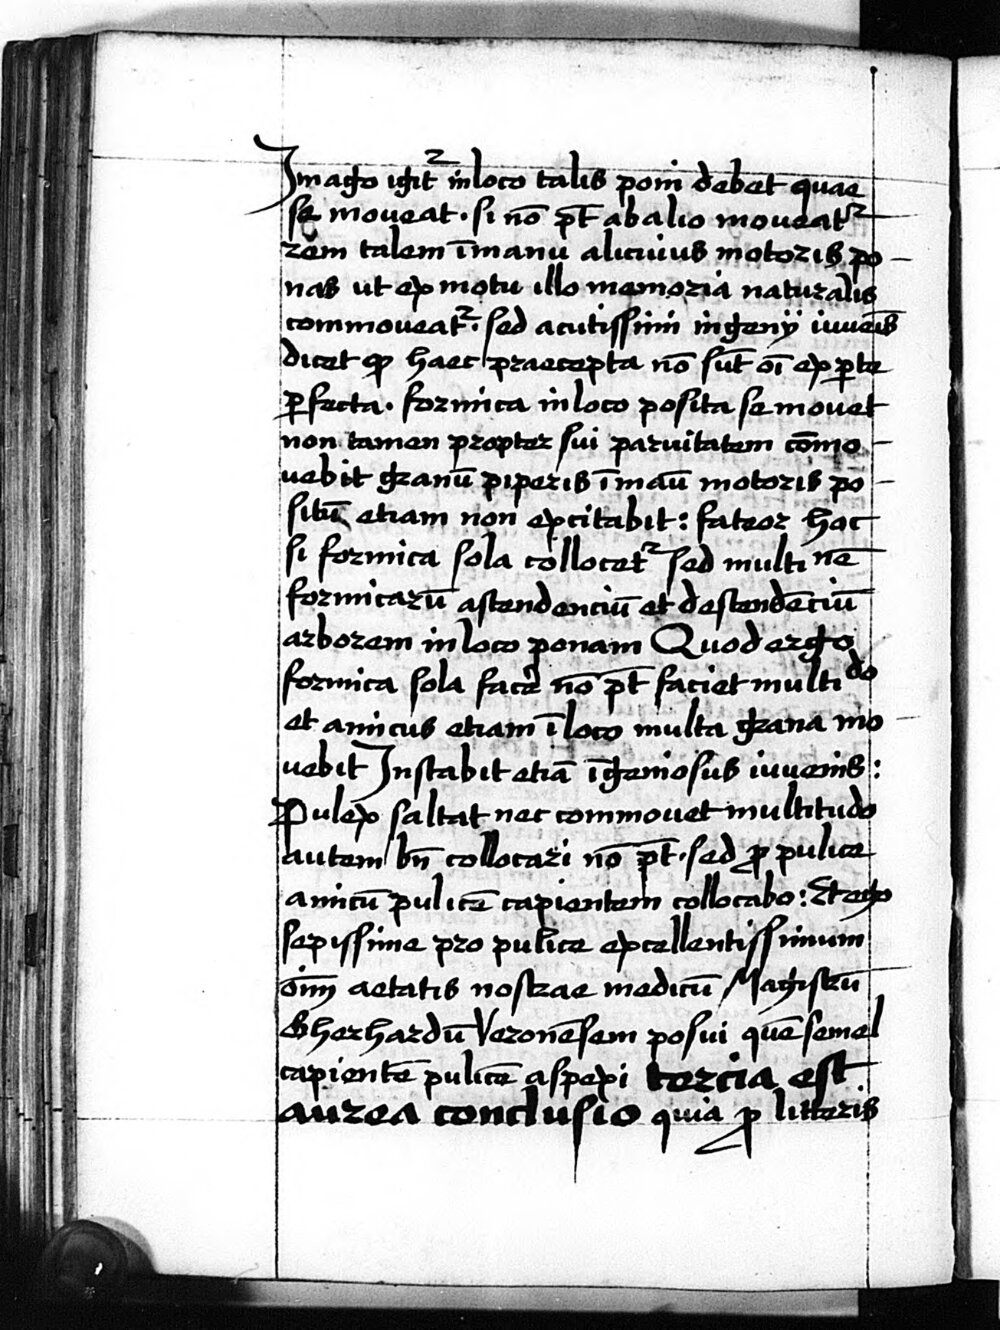 Imago igit᷑ in loco talis poni debet quae
se moveat · si nō pt̄ ab alio moveat᷑
rem talem ī manu alicuius motoris po
nas ut ex motu illo memoria naturalis
commoveat᷑ · sed acutissimi ingenij iuvēis
dicet ꝙ haec praecepta nō sūt oī ex ꝑte
ꝑfecta · formica in loco posita se movet
non tamen propter sui parvitatem cōmo
vebit granū piperis ī māu motoris po
sitū etiam non excitabit : fateor hoc
si formica sola collocet᷑ sed multi nē
formicarū astendenciū et destendēciū
arborem in loco ponam Quod ergo
formica sola facē nō pt̄ faciet multi do
et amicus etiam ī loco multa grana mo
vebit Instabit etiā īgeniosus iuvenis :
Pulex saltat nec commovet multitudo
autem bn̄ collocari nō pt̄ · sed ꝓ pulice
amicū pulicē capientem collocabo : Et ego
sepissime pro pulice excellentissimum
oīm aetatis nostrae medicū Magistrū
Gherhardū Veronēsem posui quē semel
capientē pulicē aspexi tercia est
aurea conclusio quia ꝓ litteris